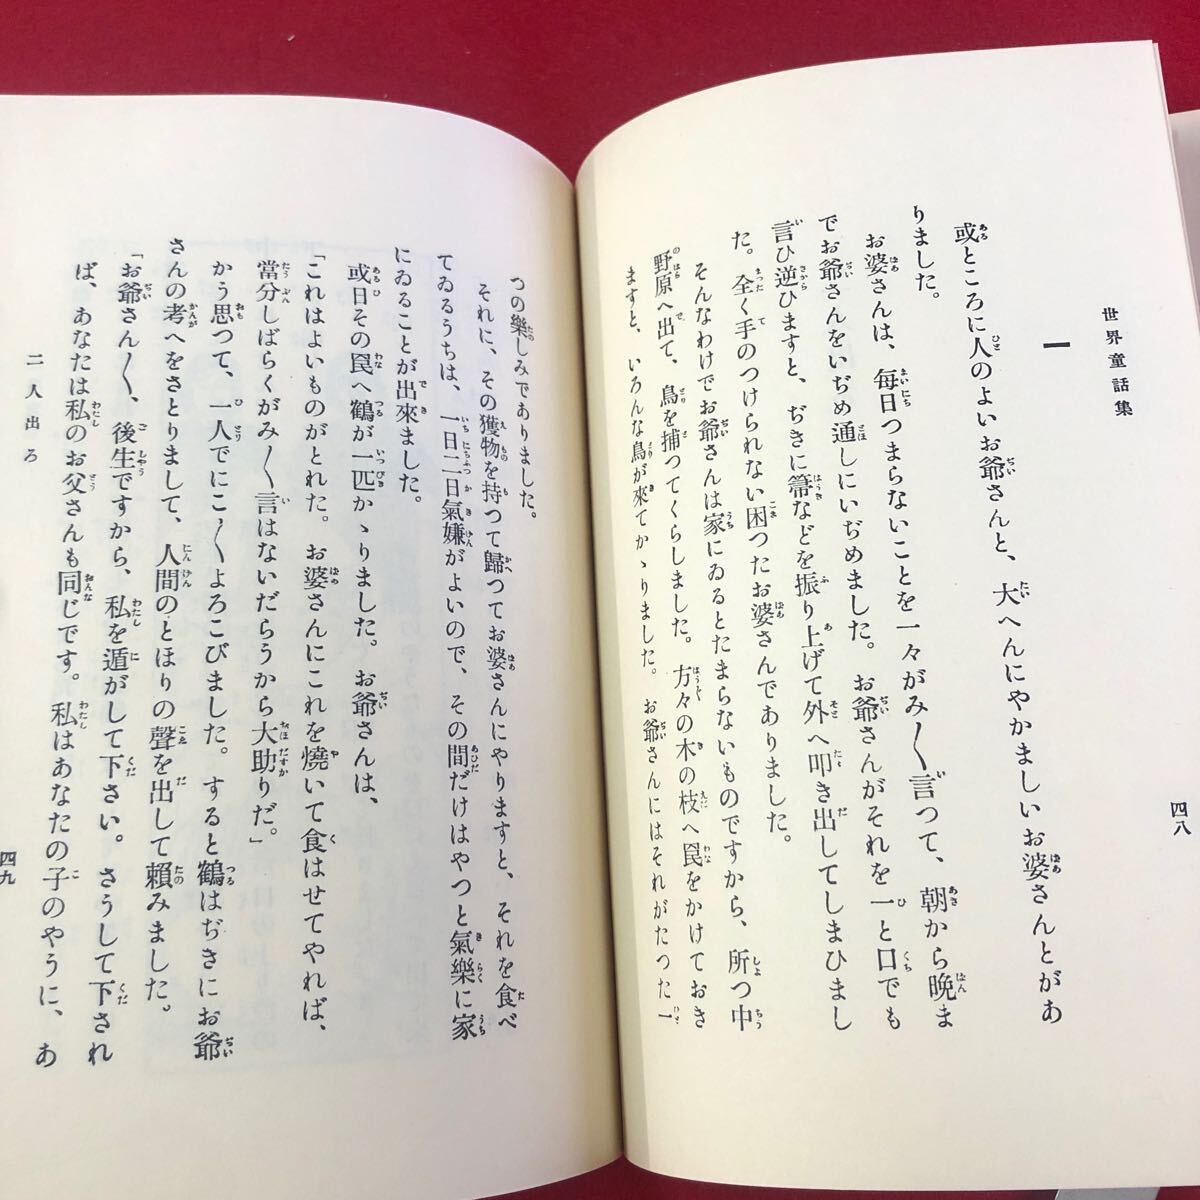 世界童話集
四八
一
或ところに人のよいお爺さんと、大へんにやかましいお婆さんとがあ
りました。
お婆さんは、毎日つまらないことを一々がみ〳〵言つて、朝から晩ま
でお爺さんをいぢめ通しにいぢめました。お爺さんがそれを一と口でも
言ひ逆ひますと、ぢきに箒などを振り上げて外へ叩き出してしまひまし
た。全く手のつけられない困つたお婆さんでありました。
そんなわけでお爺さんは家にゐるとたまらないものですから、所つ中
野原へ出て、鳥を捕つてくらしました。方々の木の枝へ罠をかけておき
ますと、いろんな鳥が來てかゝりました。お爺さんにはそれがたつた一
つの樂しみでありました。
それに、その獲物を持つて歸つてお婆さんにやりますと、それを食べ
てゐるうちは、一日二日氣嫌がよいので、その間だけはやつと氣樂に家
にゐることが出來ました。
或日その罠へ鶴が一匹かゝりました。お爺さんは、
「これはよいものがとれた。お婆さんにこれを燒いて食はせてやれば、
當分しばらくがみ〳〵言はないだらうから大助りだ。」
かう思つて、一人でにこ〳〵よろこびました。すると鶴はぢきにお爺
さんの考へをさとりまして、人間のとほりの聲を出して賴みました。
「お爺さん〳〵、後生ですから、私を遁がして下さい。さうして下され
ば、あなたは私のお父さんも同じです。私はあなたの子のやうに、あ
二人出ろ
四九